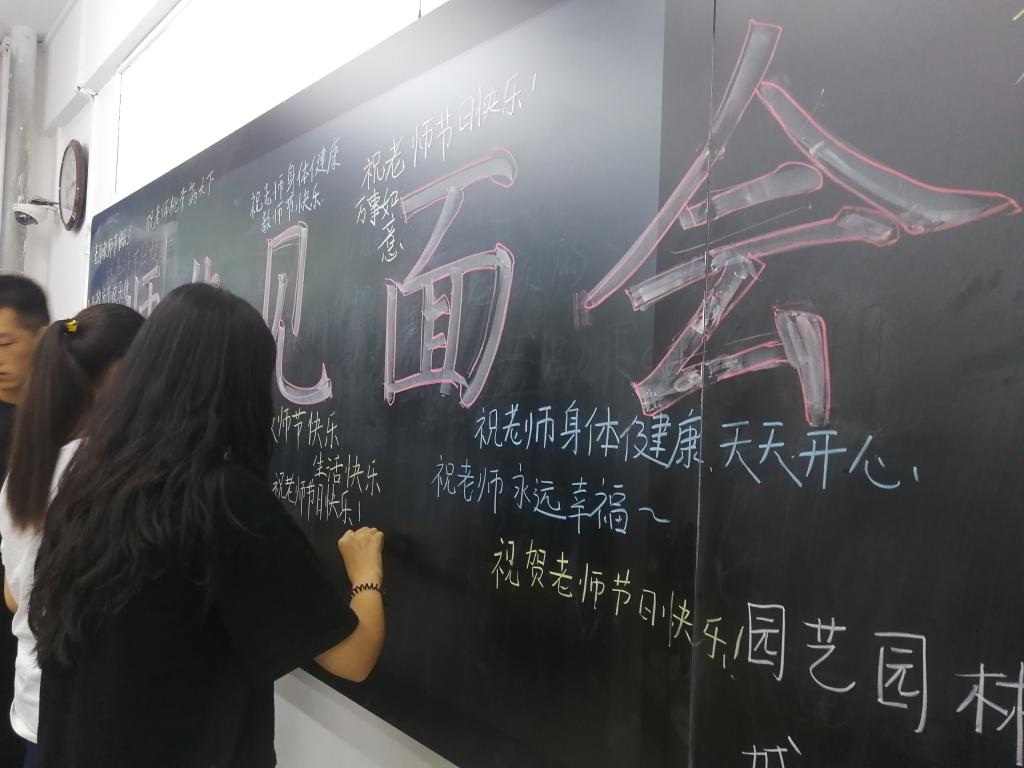 祝老师节日快乐！
万事如
意
祝老师身体健康
教师节快乐
见面会
师节快乐
生活快乐
祝老师节日快乐！
祝老师身体健康、天天开心、
祝老师永远幸福～
祝贺老师节日快乐！
园艺园林